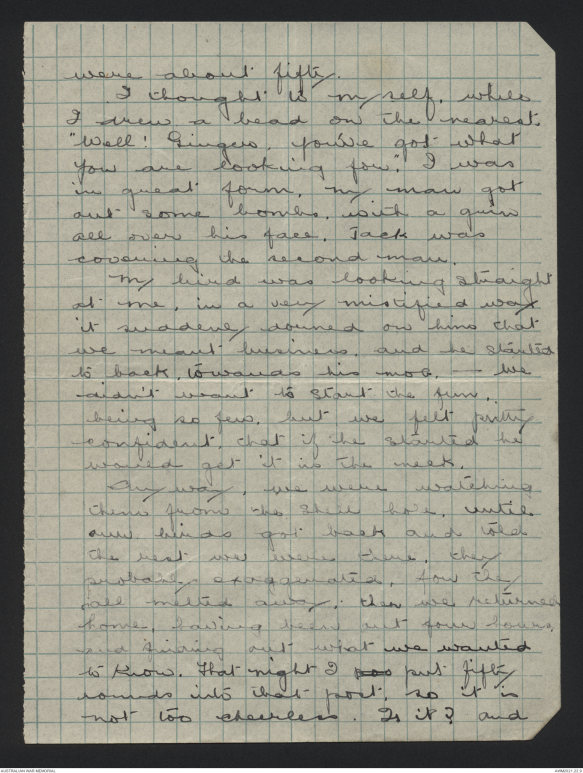 were about fifty.
I thought to myself, while
I drew a bead on the nearest.
"Well! Ginger, you've got what
you are looking for". I was
in great form, my man got
out some bombs, with a grin
all over his face. Jack was
covering the second man.
My bird was looking straight
at me, in a very mistified way
it suddenly dawned on him that
we meant business, and he started
to back, towards his mob, — We
didn't want to start the fun,
being so few, but we felt pretty
confident, that if he started he
would get it in the neck.
Anyway, we were watching
them from the shell hole, until
our birds got back and told
the rest we were there, they
probably exaggerated, for they
all melted away, then we returned
home, having been out four hours,
and finding out what we wanted
to know. That night I put fifty
rounds into that post, so it is
not too cheerless. Is it? and
AUSTRALIAN WAR MEMORIAL